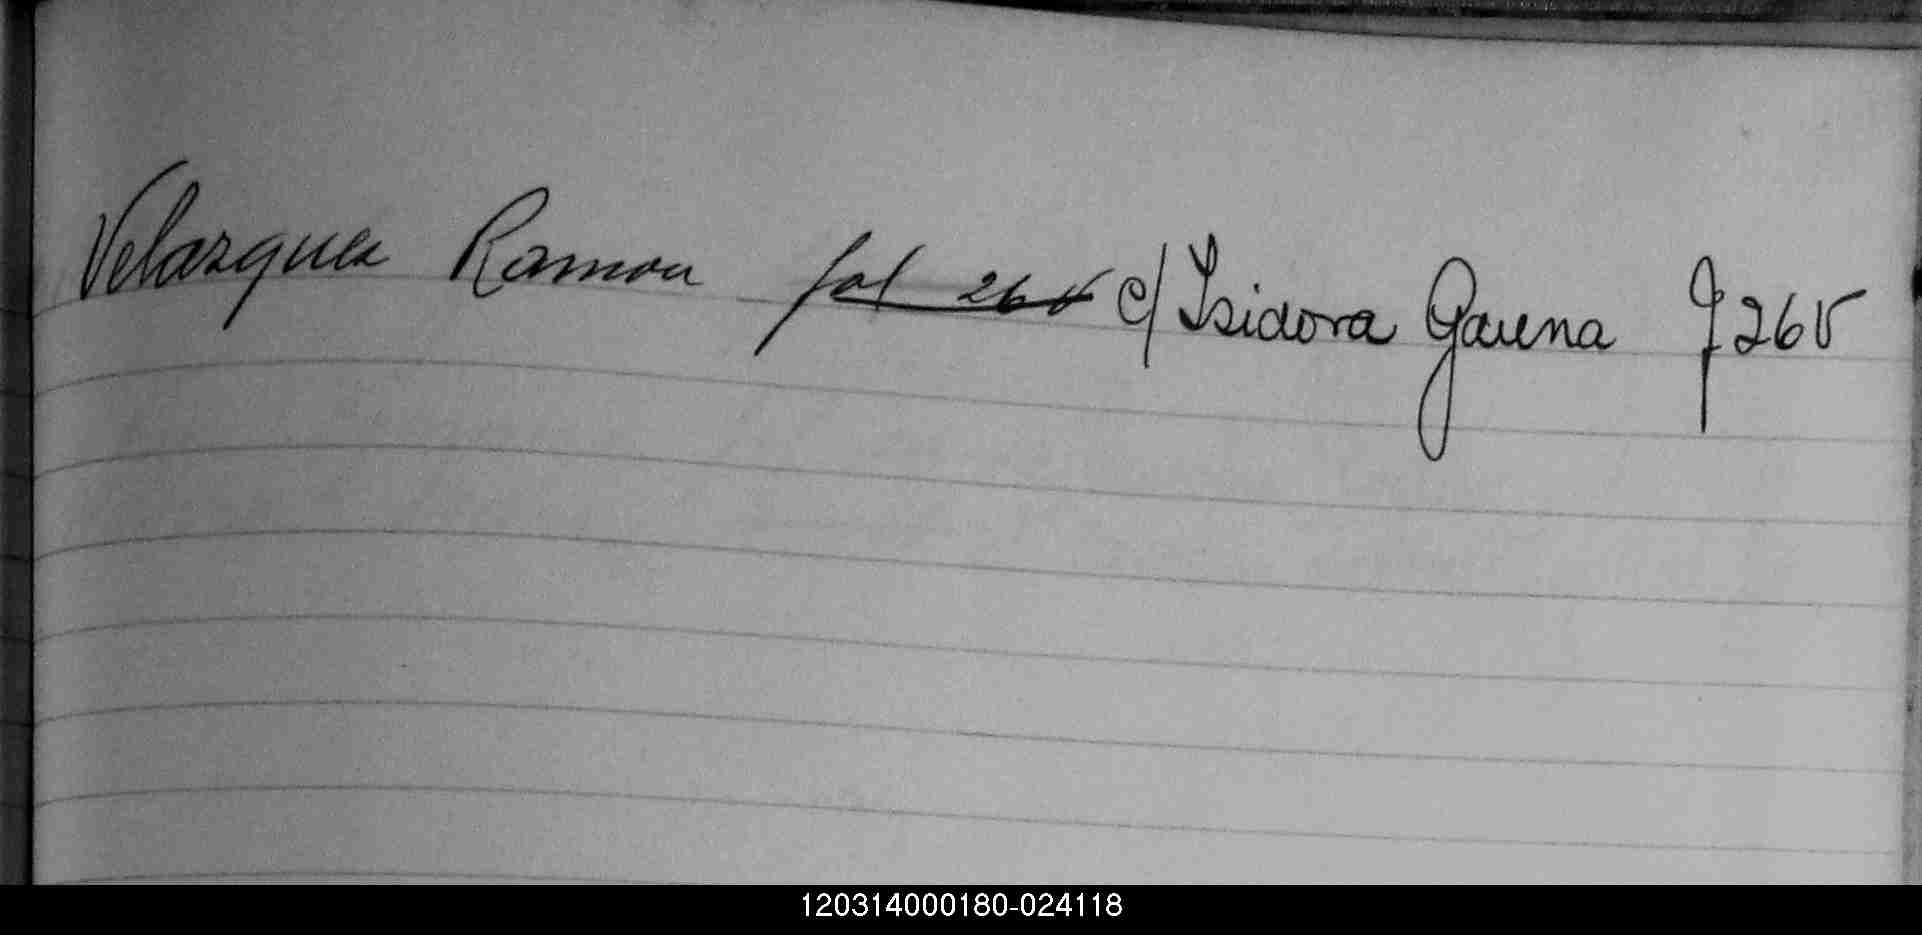 Velazquez Ramon fol 26v c/ Isidora Gauna f 26v
120314000180-024118